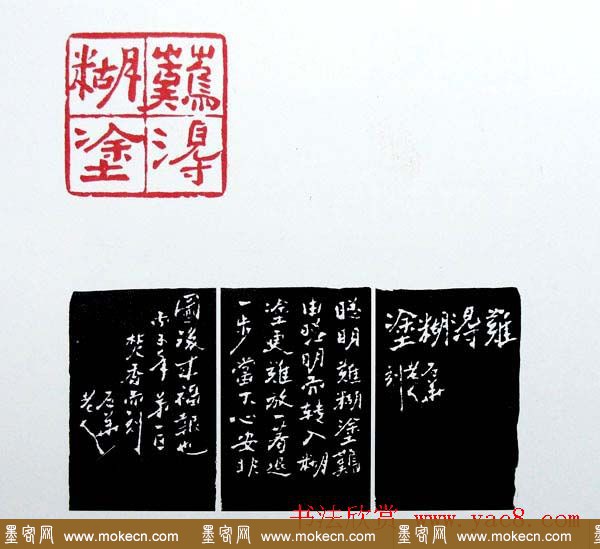 難得
糊塗
難得糊塗
老人
刻
聰明難糊塗難
由聰明而轉入糊
塗更難放一著退
一步當下心安非
圖後來福報也
丙子年第一日
焚香而刻
老人
书法欣赏 www.yac8.com
墨客网 www.mokecn.com 墨客网 www.mokecn.com 墨客网 www.mokecn.com